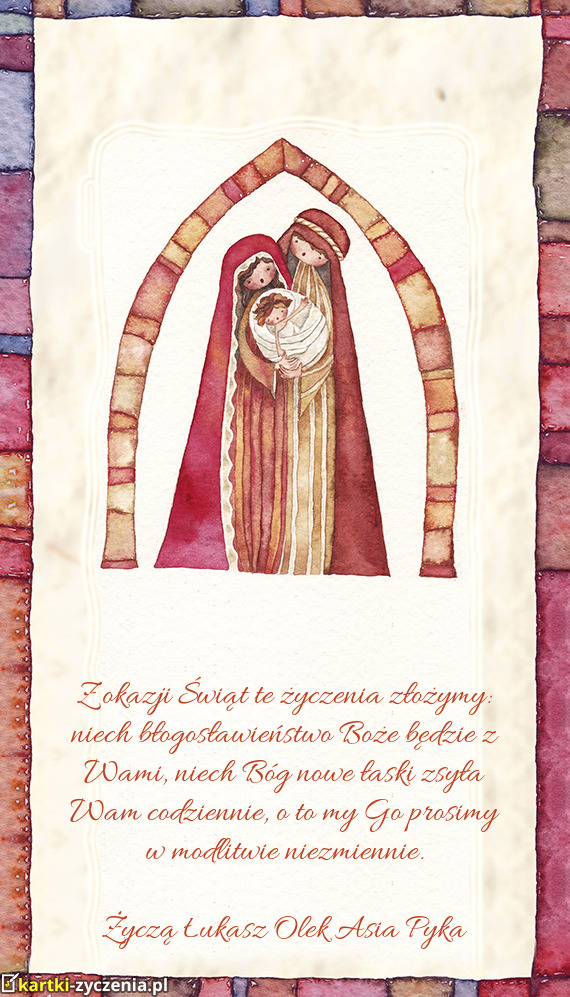 Z okazji Świąt te życzenia złożymy:
niech błogosławieństwo Boże będzie z
Wami, niech Bóg nowe łaski zsyła
Wam codziennie, o to my Go prosimy
w modlitwie niezmiennie.
Życzą Łukasz Olek Asia Pyka
kartki-zyczenia.pl